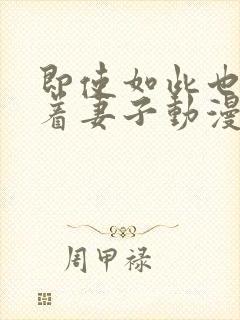 即使如此也
着妻子動漫
周甲禄